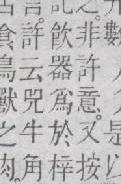 數是
之非許意。又按
記飲器爲於梓
言許云兕牛角
食鳥獸之肉